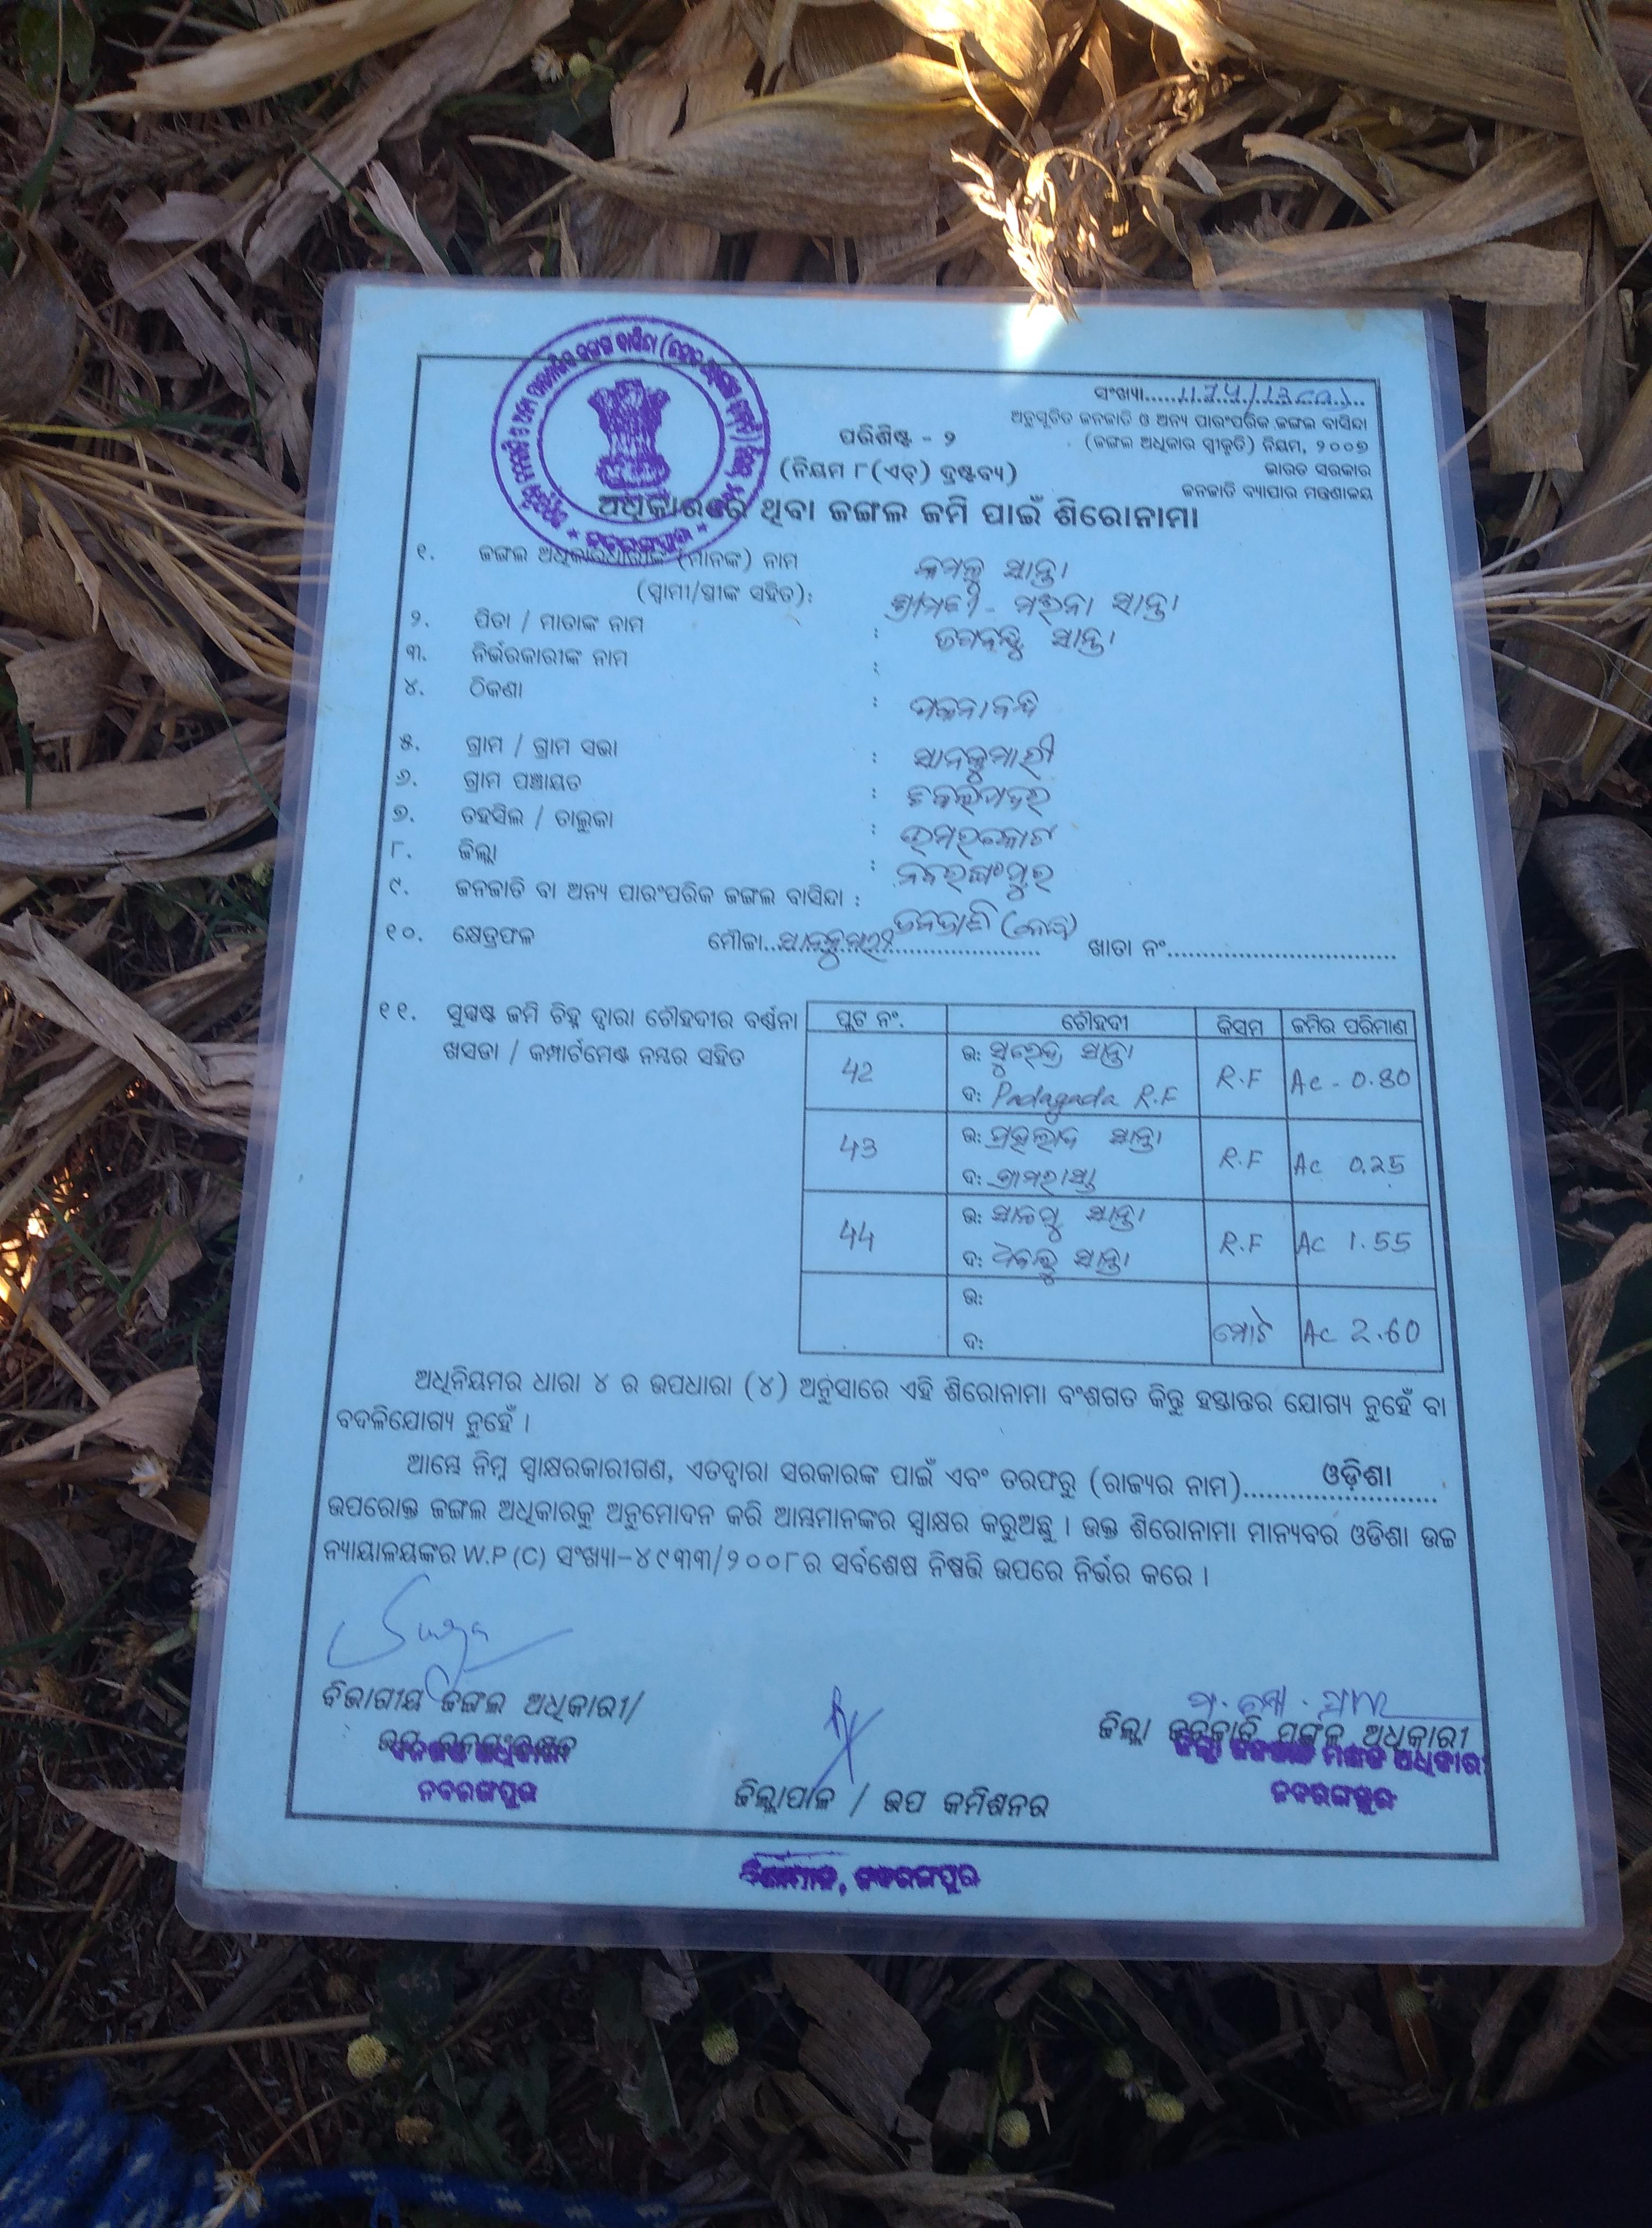 ସଂଖ୍ୟା
ଅନୁସୂଚିତ ଜନଜାତି ଓ ଅନ୍ୟ ପାରଂପରିକ ଜଙ୍ଗଲ ବାସିନ୍ଦା
(ଜଙ୍ଗଲ ଅଧିକାର ସ୍ୱୀକୃତି) ନିୟମ, ୨୦୦୭
ଭାରତ ସରକାର
ଜନଜାତି ବ୍ୟାପାର ମନ୍ତ୍ରଣାଳୟ
ପରିଶିଷ୍ଟ - ୨
(ନିୟମ ୮(ଏଚ୍) ଦ୍ରଷ୍ଟବ୍ୟ)
ଅଧିକାରରେ ଥିବା ଜଙ୍ଗଲ ଜମି ପାଇଁ ଶିରୋନାମା
୧. ଜଙ୍ଗଲ ଅଧିକାରଧାରୀଙ୍କ (ମାନଙ୍କ) ନାମ କମଳୁ ସାନ୍ତା
(ସ୍ୱାମୀ/ସ୍ତ୍ରୀଙ୍କ ସହିତ): ସାନ୍ତା
୨. ପିତା / ମାତାଙ୍କ ନାମ : ସାନ୍ତା
୩. ନିର୍ଭରକାରୀଙ୍କ ନାମ :
୪. ଠିକଣା :
୫. ଗ୍ରାମ / ଗ୍ରାମ ସଭା : ସାନକୁମାରୀ
୬. ଗ୍ରାମ ପଞ୍ଚାୟତ :
୭. ତହସିଲ / ତାଲୁକା : ଉମରକୋଟ
୮. ଜିଲ୍ଲା : ନବରଙ୍ଗପୁର
୯. ଜନଜାତି ବା ଅନ୍ୟ ପାରଂପରିକ ଜଙ୍ଗଲ ବାସିନ୍ଦା :
୧୦. କ୍ଷେତ୍ରଫଳ ମୌଜା ସାନକୁମାରୀ ଖାତା ନଂ
୧୧. ସୁସ୍ପଷ୍ଟ ଜମି ଚିହ୍ନ ଦ୍ୱାରା ଚୌହଦୀର ବର୍ଣ୍ଣନା
ଖସଡା / କମ୍ପାର୍ଟମେଣ୍ଟ ନମ୍ବର ସହିତ
ପ୍ଲଟ ନଂ. ଚୌହଦୀ କିସମ ଜମିର ପରିମାଣ
42 ଉ: ସୁରେନ୍ଦ୍ର ସାନ୍ତା R.F Ac - 0.80
ଦ: Padagada R.F
43 ଉ: ପ୍ରହଲ୍ଲାଦ ସାନ୍ତା R.F Ac 0.25
ଦ: ଗ୍ରାମରାସ୍ତା
44 ଉ: ସାନ୍ତା R.F Ac 1.55
ଦ: ସାନ୍ତା
ଉ:
ଦ: ମୋଟ Ac 2.60
ଅଧିନିୟମର ଧାରା ୪ ର ଉପଧାରା (୪) ଅନୁସାରେ ଏହି ଶିରୋନାମା ବଂଶଗତ କିନ୍ତୁ ହସ୍ତାନ୍ତର ଯୋଗ୍ୟ ନୁହେଁ ବା
ବଦଳିଯୋଗ୍ୟ ନୁହେଁ ।
ଆମ୍ଭେ ନିମ୍ନ ସ୍ୱାକ୍ଷରକାରୀଗଣ, ଏତଦ୍ୱାରା ସରକାରଙ୍କ ପାଇଁ ଏବଂ ତରଫରୁ (ରାଜ୍ୟର ନାମ) ଓଡ଼ିଶା
ଉପରୋକ୍ତ ଜଙ୍ଗଲ ଅଧିକାରକୁ ଅନୁମୋଦନ କରି ଆମ୍ଭମାନଙ୍କର ସ୍ୱାକ୍ଷର କରୁଅଛୁ । ଉକ୍ତ ଶିରୋନାମା ମାନ୍ୟବର ଓଡିଶା ଉଚ୍ଚ
ନ୍ୟାୟାଳୟଙ୍କର W.P (C) ସଂଖ୍ୟା-୪୯୩୩/୨୦୦୮ର ସର୍ବଶେଷ ନିଷ୍ପତ୍ତି ଉପରେ ନିର୍ଭର କରେ ।
ବିଭାଗୀୟ ଜଙ୍ଗଲ ଅଧିକାରୀ/
ନବରଙ୍ଗପୁର
ଜିଲ୍ଲାପାଳ / ଉପ କମିଶନର
ଜିଲ୍ଲା ଜନଜାତି ମଙ୍ଗଳ ଅଧିକାରୀ
ଜିଲ୍ଲା ଜନଜାତି ମଙ୍ଗଳ ଅଧିକାରୀ
ନବରଙ୍ଗପୁର
ଜିଲ୍ଲାପାଳ, ନବରଙ୍ଗପୁର